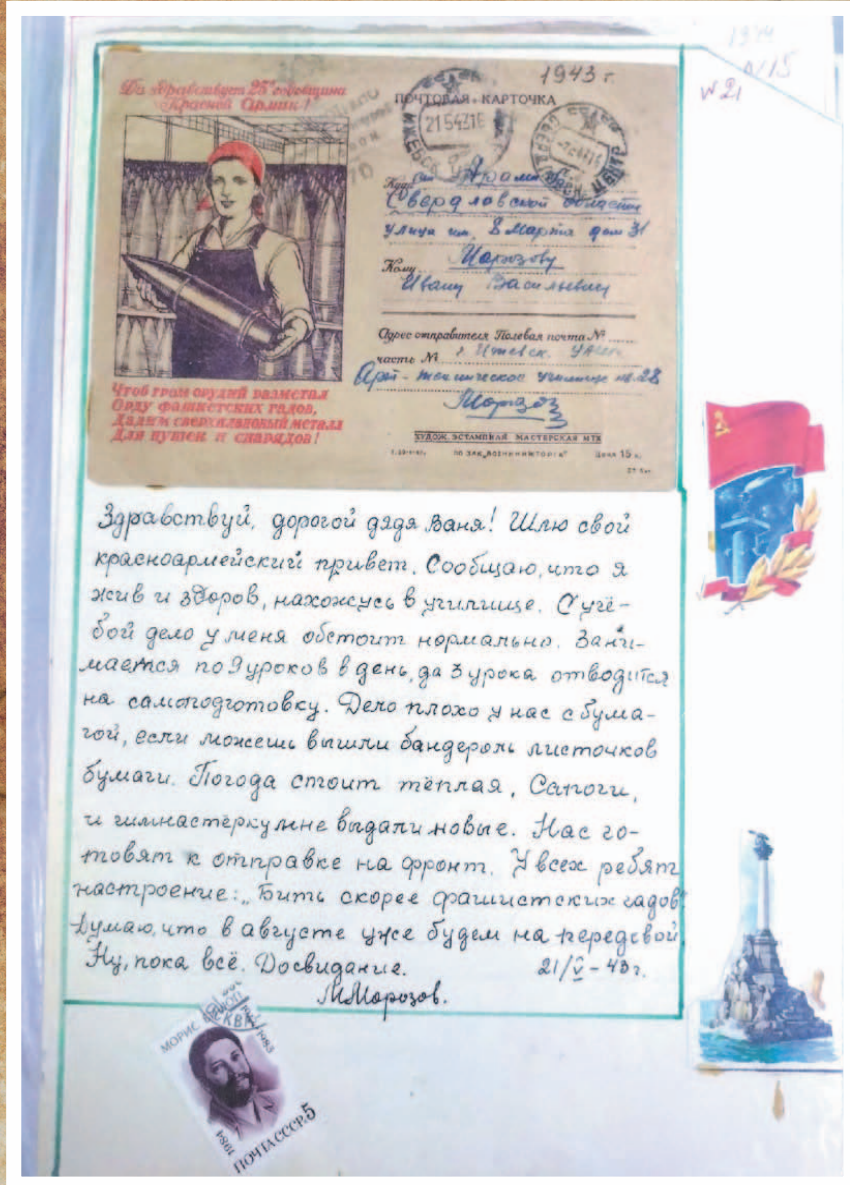 1974
N 15
N 21
1943 г.
Да здравствует 25я годовщина
Красной Армии!
ПОЧТОВАЯ КАРТОЧКА
21 5 43 16
Куда
Свердловской области
улица им. 8 Марта дом 31
Кому Марозову
Ивану Васильевичу
Адрес отправителя Полевая почта №
часть № г. Ижевск.
Арт-техническое училище
Марозов
Чтоб гром орудий разметал
Орду фашистских гадов,
Дадим сверхплановый металл
Для пушек и снарядов!
ХУДОЖ. ЭСТАМПНАЯ МАСТЕРСКАЯ МТВ
ПО ЗАК. „ВОЕНКНИЖТОРГА"
Цена 15 к.
Здравствуй, дорогой дядя Ваня! Шлю свой
красноармейский привет. Сообщаю, что я
жив и здоров, нахожусь в училище. С учё-
бой дело у меня обстоит нормально. Зани-
маемся по 9 уроков в день, да 3 урока отводится
на самоподготовку. Дело плохо у нас с бума-
гой, если можешь вышли бандероль листочков
бумаги. Погода стоит тёплая, Сапоги,
и гимнастёрку мне выдали новые. Нас го-
товят к отправке на фронт. У всех ребят
настроение: „Бить скорее фашистских гадов"
Думаю, что в августе уже будем на передовой
Ну, пока всё. Досвидание. 21/V - 43 г.
М Морозов.
МОРИС
1983
1984
ПОЧТА СССР 5